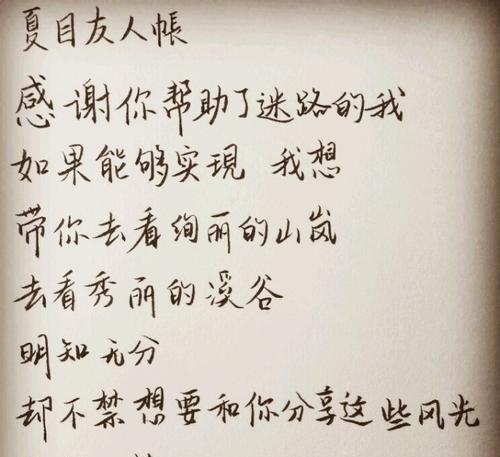 夏目友人帳
感谢你帮助了迷路的我
如果能够实現 我想
带你去看绚丽的山岚
去看秀丽的溪谷
明知无分
却不禁想要和你分享这些风光